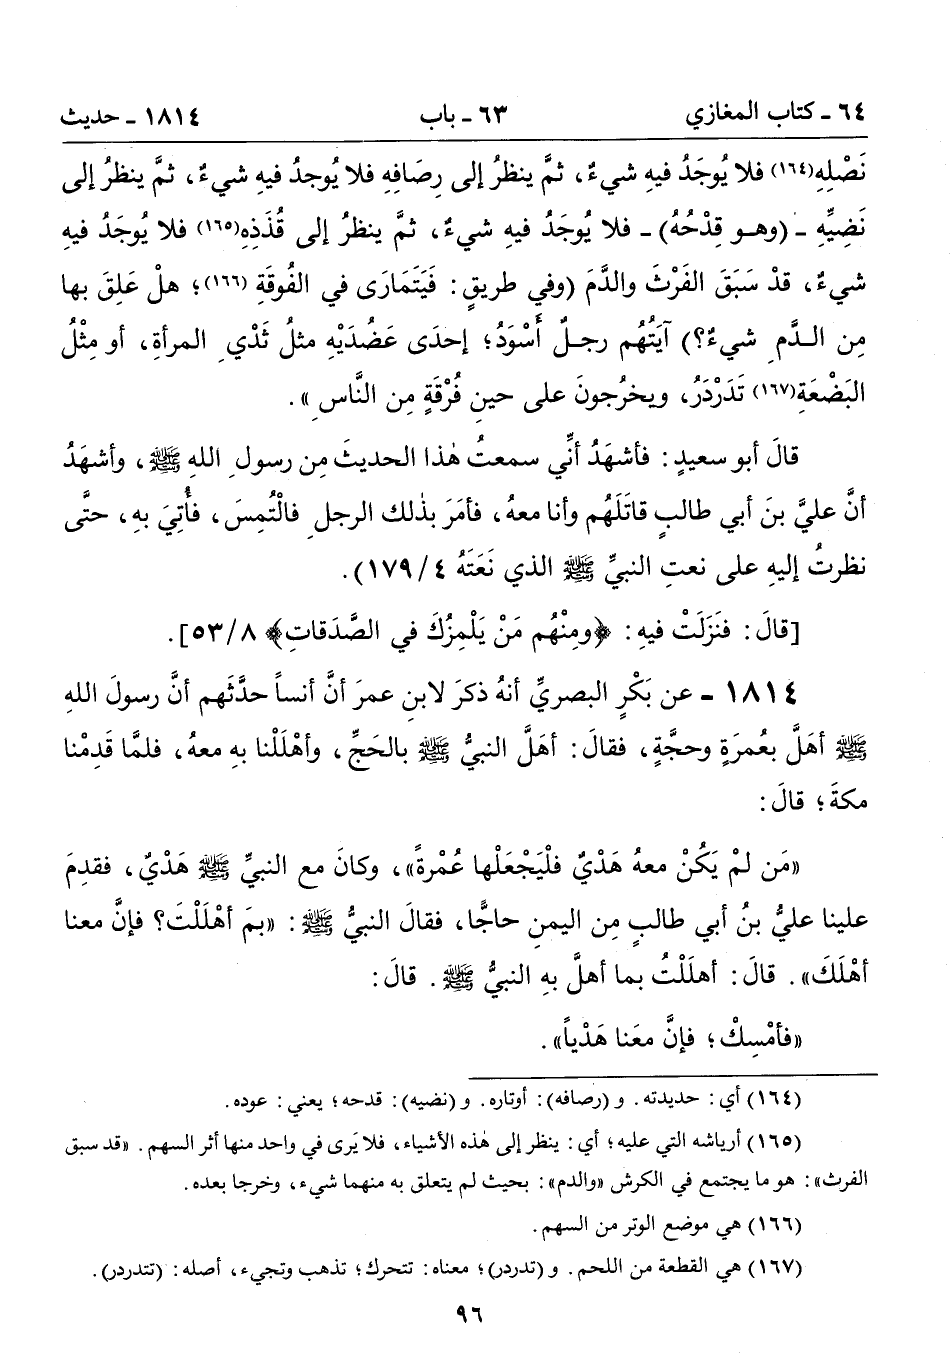 ٦٤ ـ كتاب المغازي ٦٣ ـ باب ١٨١٤ ـ حديث
نَصْلِهِ(١٦٤) فلا يُوجَدُ فيه شيءٌ، ثمَّ ينظرُ إلى رِصَافِهِ فلا يُوجدُ فيهِ شيءٌ، ثمَّ ينظرُ إلى
نَضِيِّهِ ـ (وهـو قِدْحُهُ) ـ فلا يُوجَدُ فيهِ شيءٌ، ثمَّ ينظرُ إلى قُذَذِهِ(١٦٥) فلا يُوجَدُ فيهِ
شيءٌ، قدْ سَبَقَ الفَرْثَ والدَّمَ (وفي طريقٍ: فَيَتَمَارَى في الفُوقَةِ(١٦٦)؛ هلْ عَلِقَ بها
مِن الـدَّمِ شيءٌ؟) آيَتُهُم رجـلٌ أَسْوَدُ؛ إحدَى عَضُدَيْهِ مثلُ ثَدْيِ المرأةِ، أو مِثْلُ
البَضْعَةِ(١٦٧) تَدَرْدَرُ، ويخرُجونَ على حينِ فُرْقَةٍ مِن النَّاسِ».
قالَ أبو سعيدٍ: فأشهَدُ أنِّي سمعتُ هٰذا الحديثَ مِن رسولِ اللهِ ﷺ، وأشهَدُ
أنَّ عليَّ بنَ أبي طالبٍ قاتَلَهُم وأنا معهُ، فأمَرَ بذٰلك الرجلِ فالْتُمِسَ، فأُتِيَ بِهِ، حتَّى
نظرتُ إليهِ على نعتِ النبيِّ ﷺ الذي نَعَتَهُ ١٧٩/٤).
[قالَ: فنَزَلَتْ فيهِ: ﴿ومِنْهُم مَنْ يَلْمِزُكَ في الصَّدَقاتِ﴾ ٥٣/٨].
١٨١٤ ـ عن بَكْرٍ البصريِّ أنهُ ذكرَ لابنِ عمرَ أنَّ أنساً حدَّثَهم أنَّ رسولَ الله
ﷺ أهَلَّ بعُمرَةٍ وحجَّةٍ، فقالَ: أهَلَّ النبيُّ ﷺ بالحَجِّ، وأهْلَلْنا بهِ معهُ، فلمَّا قَدِمْنا
مكةَ؛ قالَ:
«مَن لمْ يَكُنْ معهُ هَدْيٌ فلْيَجْعَلْها عُمْرةً»، وكانَ مع النبيِّ ﷺ هَدْيٌ، فقدِمَ
علينا عليُّ بنُ أبي طالبٍ مِن اليمنِ حاجًّا، فقالَ النبيُّ ﷺ: «بمَ أهْلَلْتَ؟ فإنَّ معنا
أهْلَكَ». قالَ: أهلَلْتُ بما أهلَّ بهِ النبيُّ ﷺ. قالَ:
«فأمْسِكْ؛ فإنَّ معَنا هَدْياً».
(١٦٤) أي: حديدته. و (رصافه): أوتاره. و (نضيه): قدحه؛ يعني: عوده.
(١٦٥) أرياشه التي عليه؛ أي: ينظر إلى هٰذه الأشياء، فلا يَرى في واحد منها أثر السهم. «قد سبق
الفرث»: هو ما يجتمع في الكرش «والدم»: بحيث لم يتعلق به منهما شيء، وخرجا بعده.
(١٦٦) هي موضع الوتر من السهم.
(١٦٧) هي القطعة من اللحم. و (تدردر)؛ معناه: تتحرك؛ تذهب وتجيء، أصله: (تتدردر).
٩٦